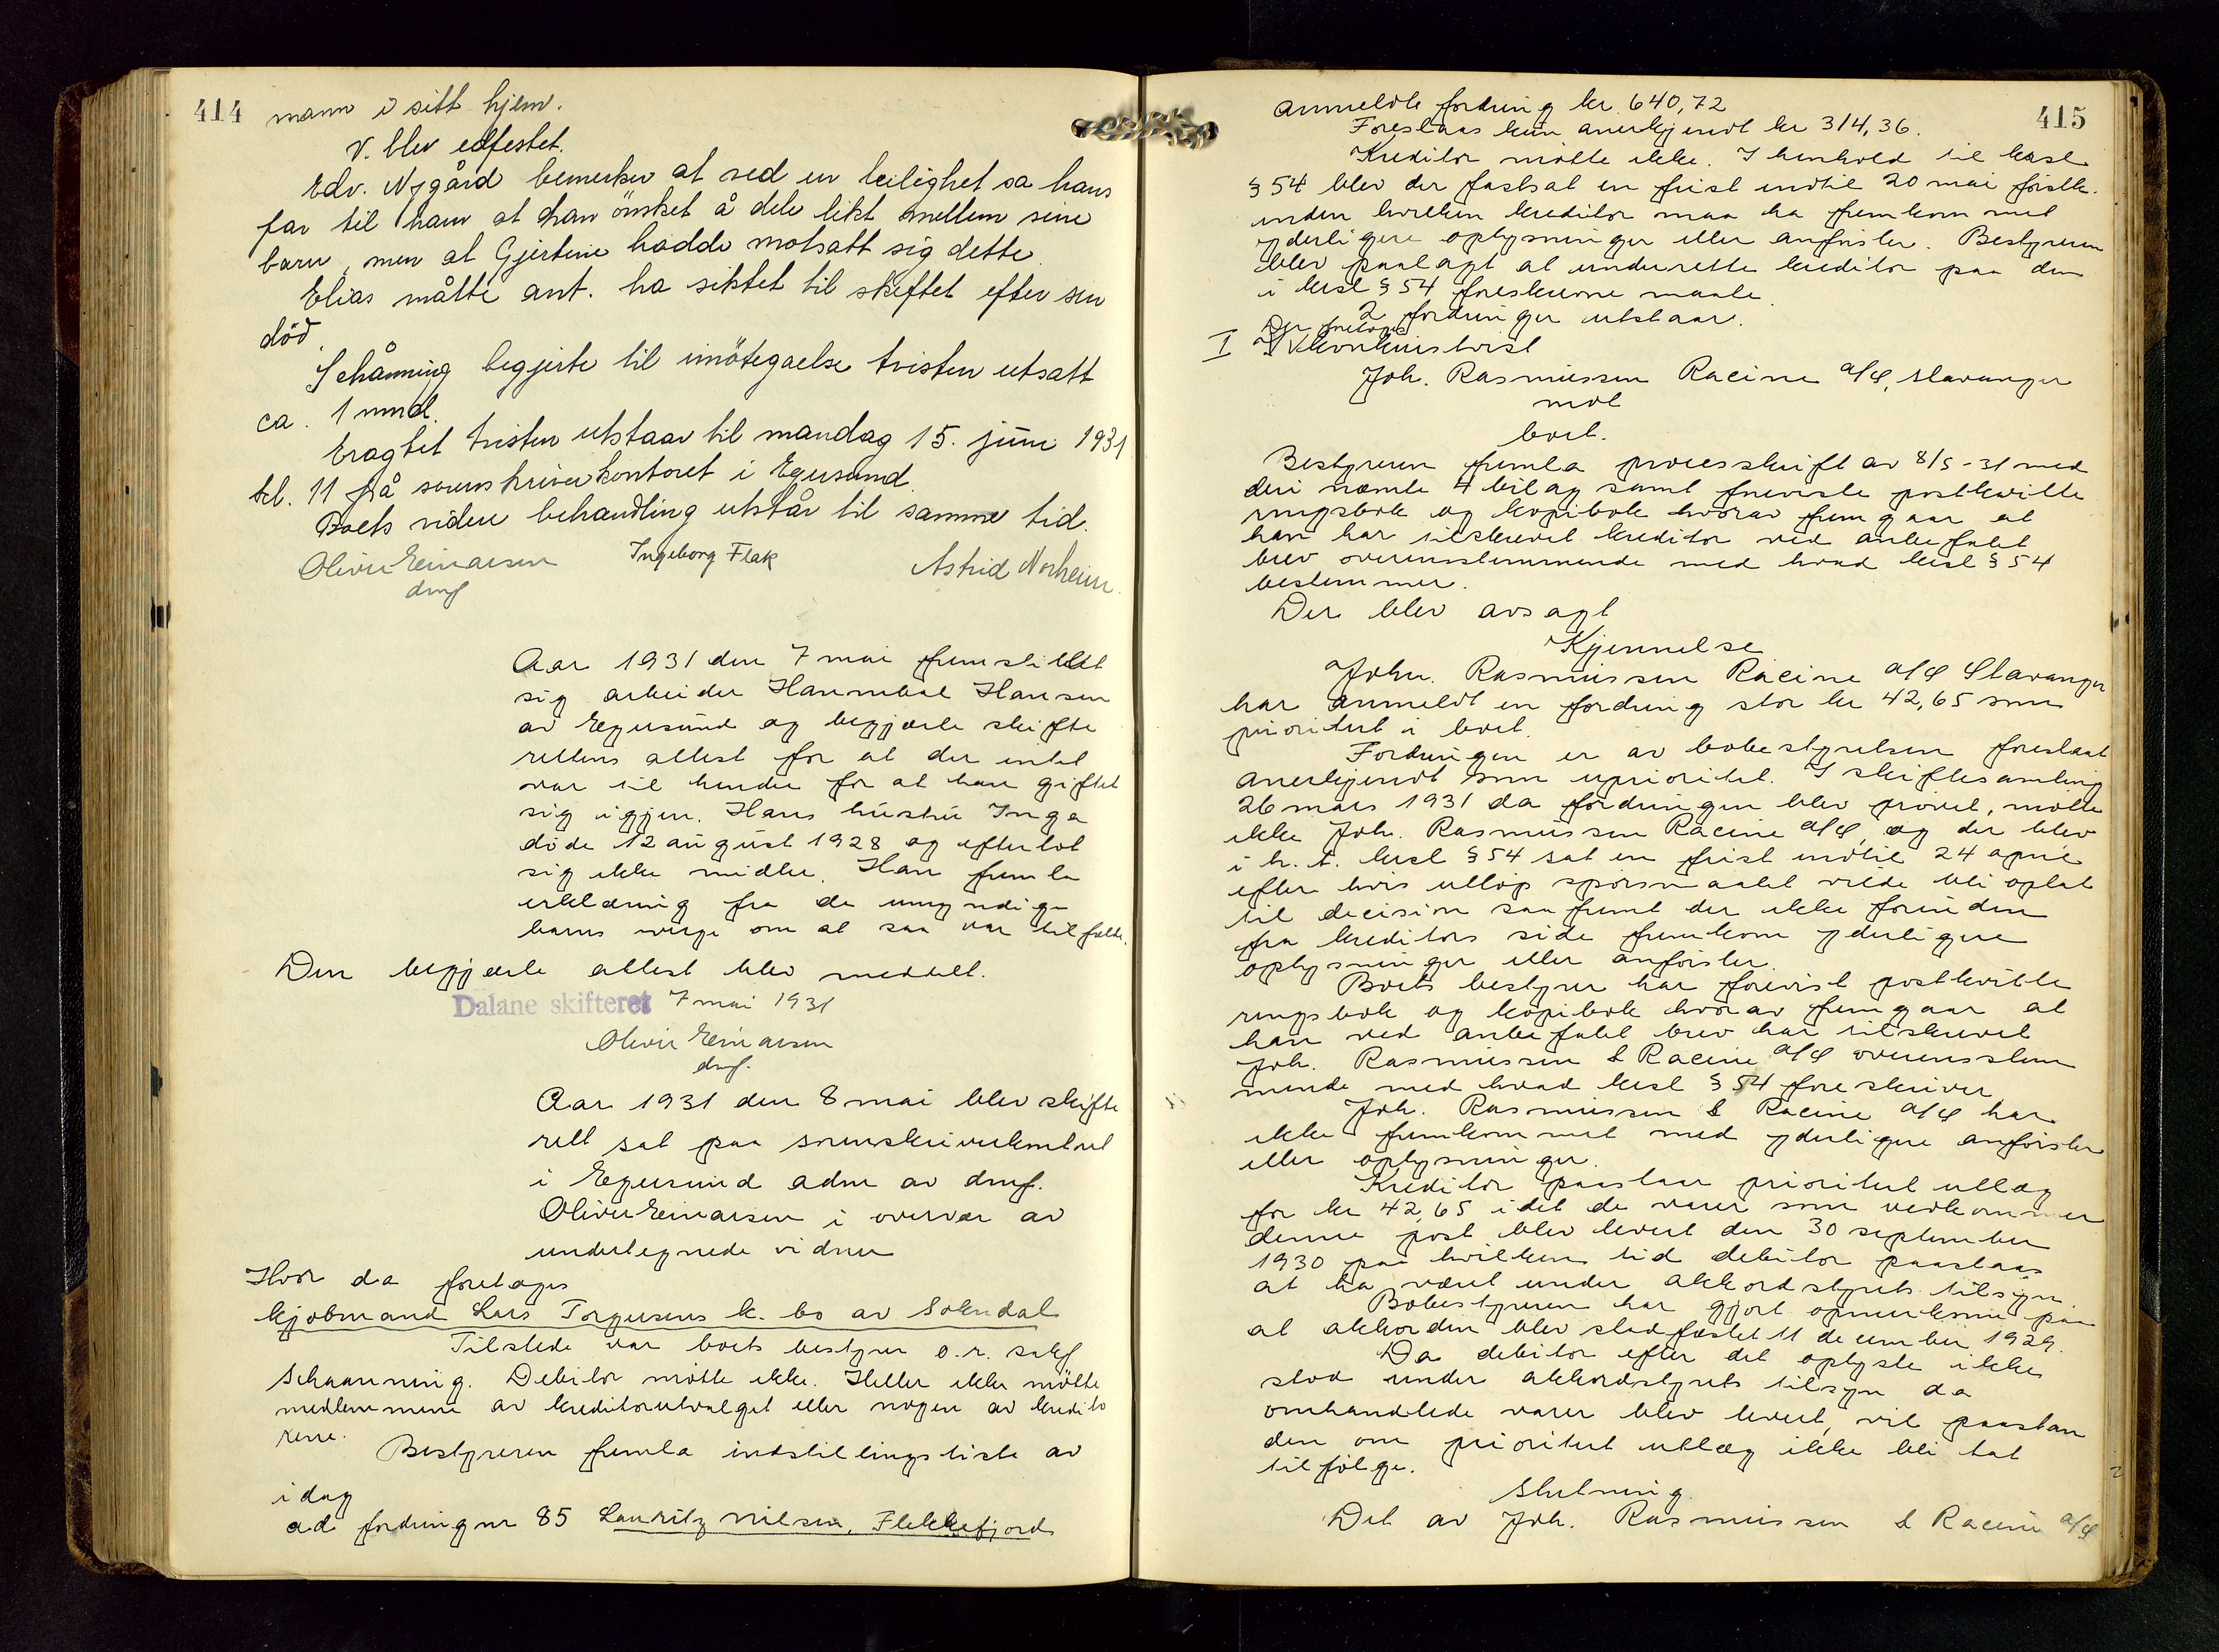 414
mann i sitt hjem.
V. blev edfestet.
Edv. Nygård bemerker at ved en leilighet sa hans
far til ham at han önsket å dele likt mellem sine
barn, men at Gjertine hadde motsatt sig dette.
Elias måtte ant. ha siktet til skiftet efter sin
död.
Schånning begjerte til imötegaelse tvisten utsatt
ca. 1 mnd.
Eragtet tvisten utstaar til mandag 15. juni 1931
kl. 11 på sorenskriverkontoret i Egersund.
Boets videre behandling utstår til samme tid.
Oliver Einarsen Ingeborg Flak Astrid Norheim.
dmf
Aar 1931 den 7 mai fremstillet
sig arbeider Hannibal Hansen
av Egersund og begjærte skifte
rettens attest for at der intet
var til hinder for at han giftet
sig igjen. Hans hustru Inga
døde 12 august 1928 og efterlot
sig ikke midler. Han fremla
erklæring fra de umyndige
barns verge om at saa var tilfælde.
Den begjærte attest blev meddelt.
Dalane skifteret 7 mai 1931
Oliver Einarsen
dmf.
Aar 1931 den 8 mai blev skifte
rett sat paa sorenskriverkontoret
i Egersund adm av dmf.
Oliver Einarsen i overvær av
undertegnede vidner
Hvor da foretoges
kjøbmand Lars Torgersens k. bo av Sokndal
Tilstede var boets bestyrer o.r. sakf
Schaanning. Debitor møtte ikke. Heller ikke møtte
medlemmene av kreditorutvalget eller nogen av kredito
rene.
Bestyreren fremla indstillingsliste av
idag
ad fordring nr 85 Lauritz Nilsen, Flekkefjord
415
Anmeldte fordring kr 640,72
Foreslaas kun anerkjendt kr 314,36.
Kreditor møtte ikke. I henhold til kksl
§ 54 blev der fastsat en frist indtil 20 mai førstk.
inden hvilken kreditor maa ha fremkom met
yderligere oplysninger eller anførsler. Bestyreren
blev paalagt at underrette kreditor paa den
i kksl § 54 foreskrevne maate.
2 fordringer utstaar.
Der foretoges
I Konkurstvist
Joh. Rasmussen Racine A/S, Stavanger
mot
boet.
Bestyreren fremla processkrift av 8/5-31 med
deri nævnte 4 bilag samt foreviste postkvitte
ringsbok og kopibok hvorav fremgaar at
han har tilskrevet kreditor ved anbefalet
brev overensstemmende med hvad kksl § 54
bestemmer.
Der blev avsagt
Kjennelse
John. Rasmussen Racine A/S Stavanger
har anmeldt en fordring stor kr 42,65 som
prioritert i boet.
Fordringen er av bobestyrelsen foreslaat
anerkjendt som uprioritet. I skiftesamling
26 mars 1931 da fordringen blev prøvet, møtte
ikke Joh. Rasmussen Racine A/S, og der blev
i h. t. kksl § 54 sat en frist indtil 24 april
efter hvis utløp spørsmaalet vilde bli optat
til decision saafremt der ikke forinden
fra kreditors side fremkom yderligere
oplysninger eller anførsler.
Boets bestyrer har forevist postkvitte
ringsbok og kopibok hvorav fremgaar at
han ved anbefalet brev har tilskrevet
Joh. Rasmussen & Racine A/S overensstem
mende med hvad kksl § 54 foreskriver
Joh. Rasmussen & Racine A/S har
ikke fremkommet med yderligere anførsler
eller oplysninger.
Kreditor paastaar prioritert utlæg
for kr 42,65 idet de varer som vedkommer
denne post blev levert den 30 september
1930 paa hvilken tid debitor paastaas
at ha været under akkordstyrets tilsyn.
Bobestyreren har gjort opmerksom paa
at akkorden blev stadfæstet 11 december 1929.
Da debitor efter det oplyste ikke
stod under akkordstyrets tilsyn da
omhandlede varer blev levert, vil paastan
den om prioritert utlæg ikke bli tat
tilfølge.
Slutning
Det av Joh. Rasmussen & Racine A/S